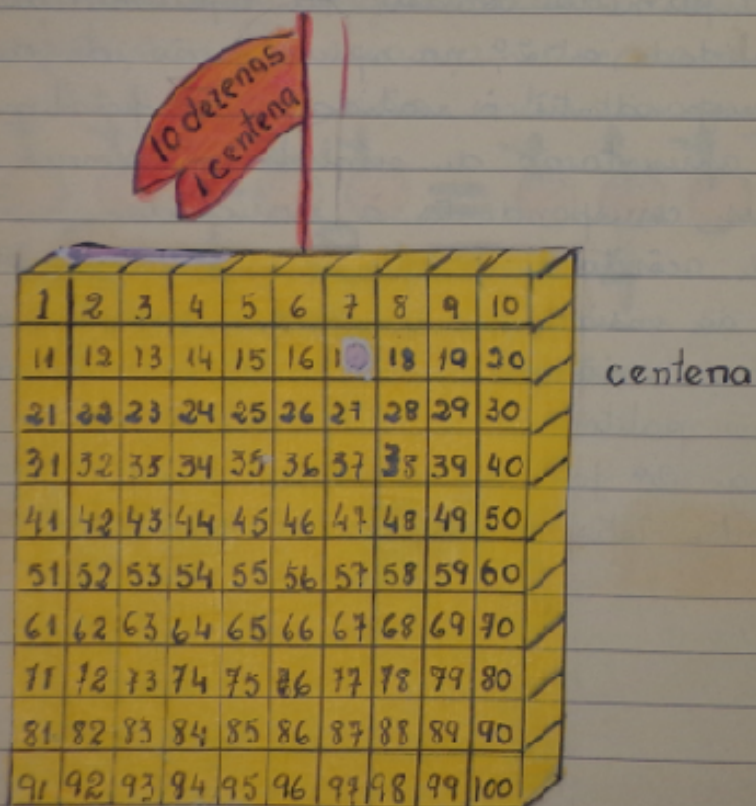 10 dezenas
1 centena
1 2 3 4 5 6 7 8 9 10
11 12 13 14 15 16 1 18 19 20
centena
21 22 23 24 25 26 27 28 29 30
31 32 33 34 35 36 37 38 39 40
41 42 43 44 45 46 47 48 49 50
51 52 53 54 55 56 57 58 59 60
61 62 63 64 65 66 67 68 69 70
71 72 73 74 75 76 77 78 79 80
81 82 83 84 85 86 87 88 89 90
91 92 93 94 95 96 97 98 99 100